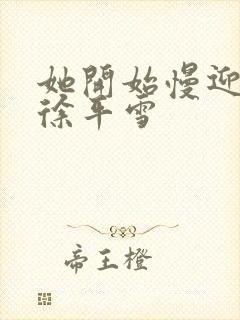 她開始慢迎
徐平雪
帝王橙